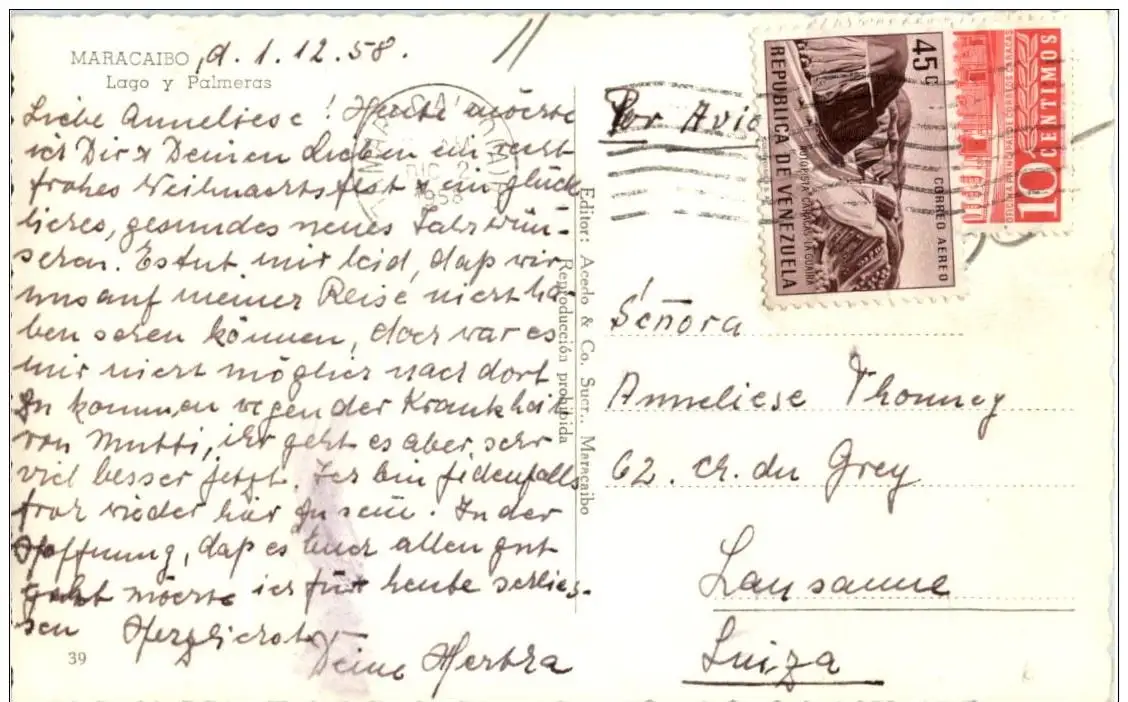 MARACAIBO, d. 1.12.58.
Lago y Palmeras
Liebe Anneliese! Heute möchte
ich Dir & Deinen Lieben ein recht
frohes Weihnachtsfest & ein glück
liches, gesundes neues Jahr wün-
schen. Es tut mir leid, daß wir
uns auf meiner Reise nicht ha-
ben sehen können, doch war es
mir nicht möglich nach dort
zu kommen wegen der Krankheit
von Mutti, ihr geht es aber sehr
viel besser jetzt. Ich bin jedenfalls
froh wieder hier zu sein. In der
Hoffnung, daß es Euch allen gut
geht möchte ich für heute schlies-
sen Herzlichst
Deine Hertha
39
Editor: Acedo & Co. Sucr., Maracaibo
Reproducción prohibida
DIC 2
1958
Por Avion
45 c
CORREO AEREO
REPUBLICA DE VENEZUELA
AUTOPISTA CARACAS-LA GUAIRA
10
CENTIMOS
Señora
Anneliese Thonney
62. ch. du Grey
Lausanne
Suiza